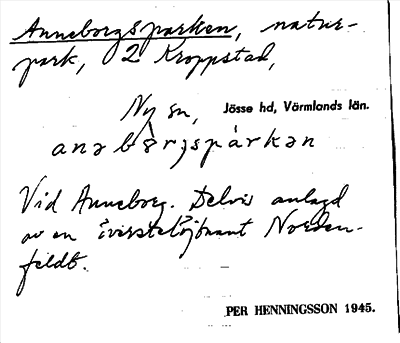 Anneborgsparken, natur-
park, 2 Kroppstad,
Ny sn, Jösse hd, Värmlands län.
anəbårjspärkən
Vid Anneborg. Delvis anlagd
av en överstelöjtnant Norden-
feldt.
PER HENNINGSSON 1945.